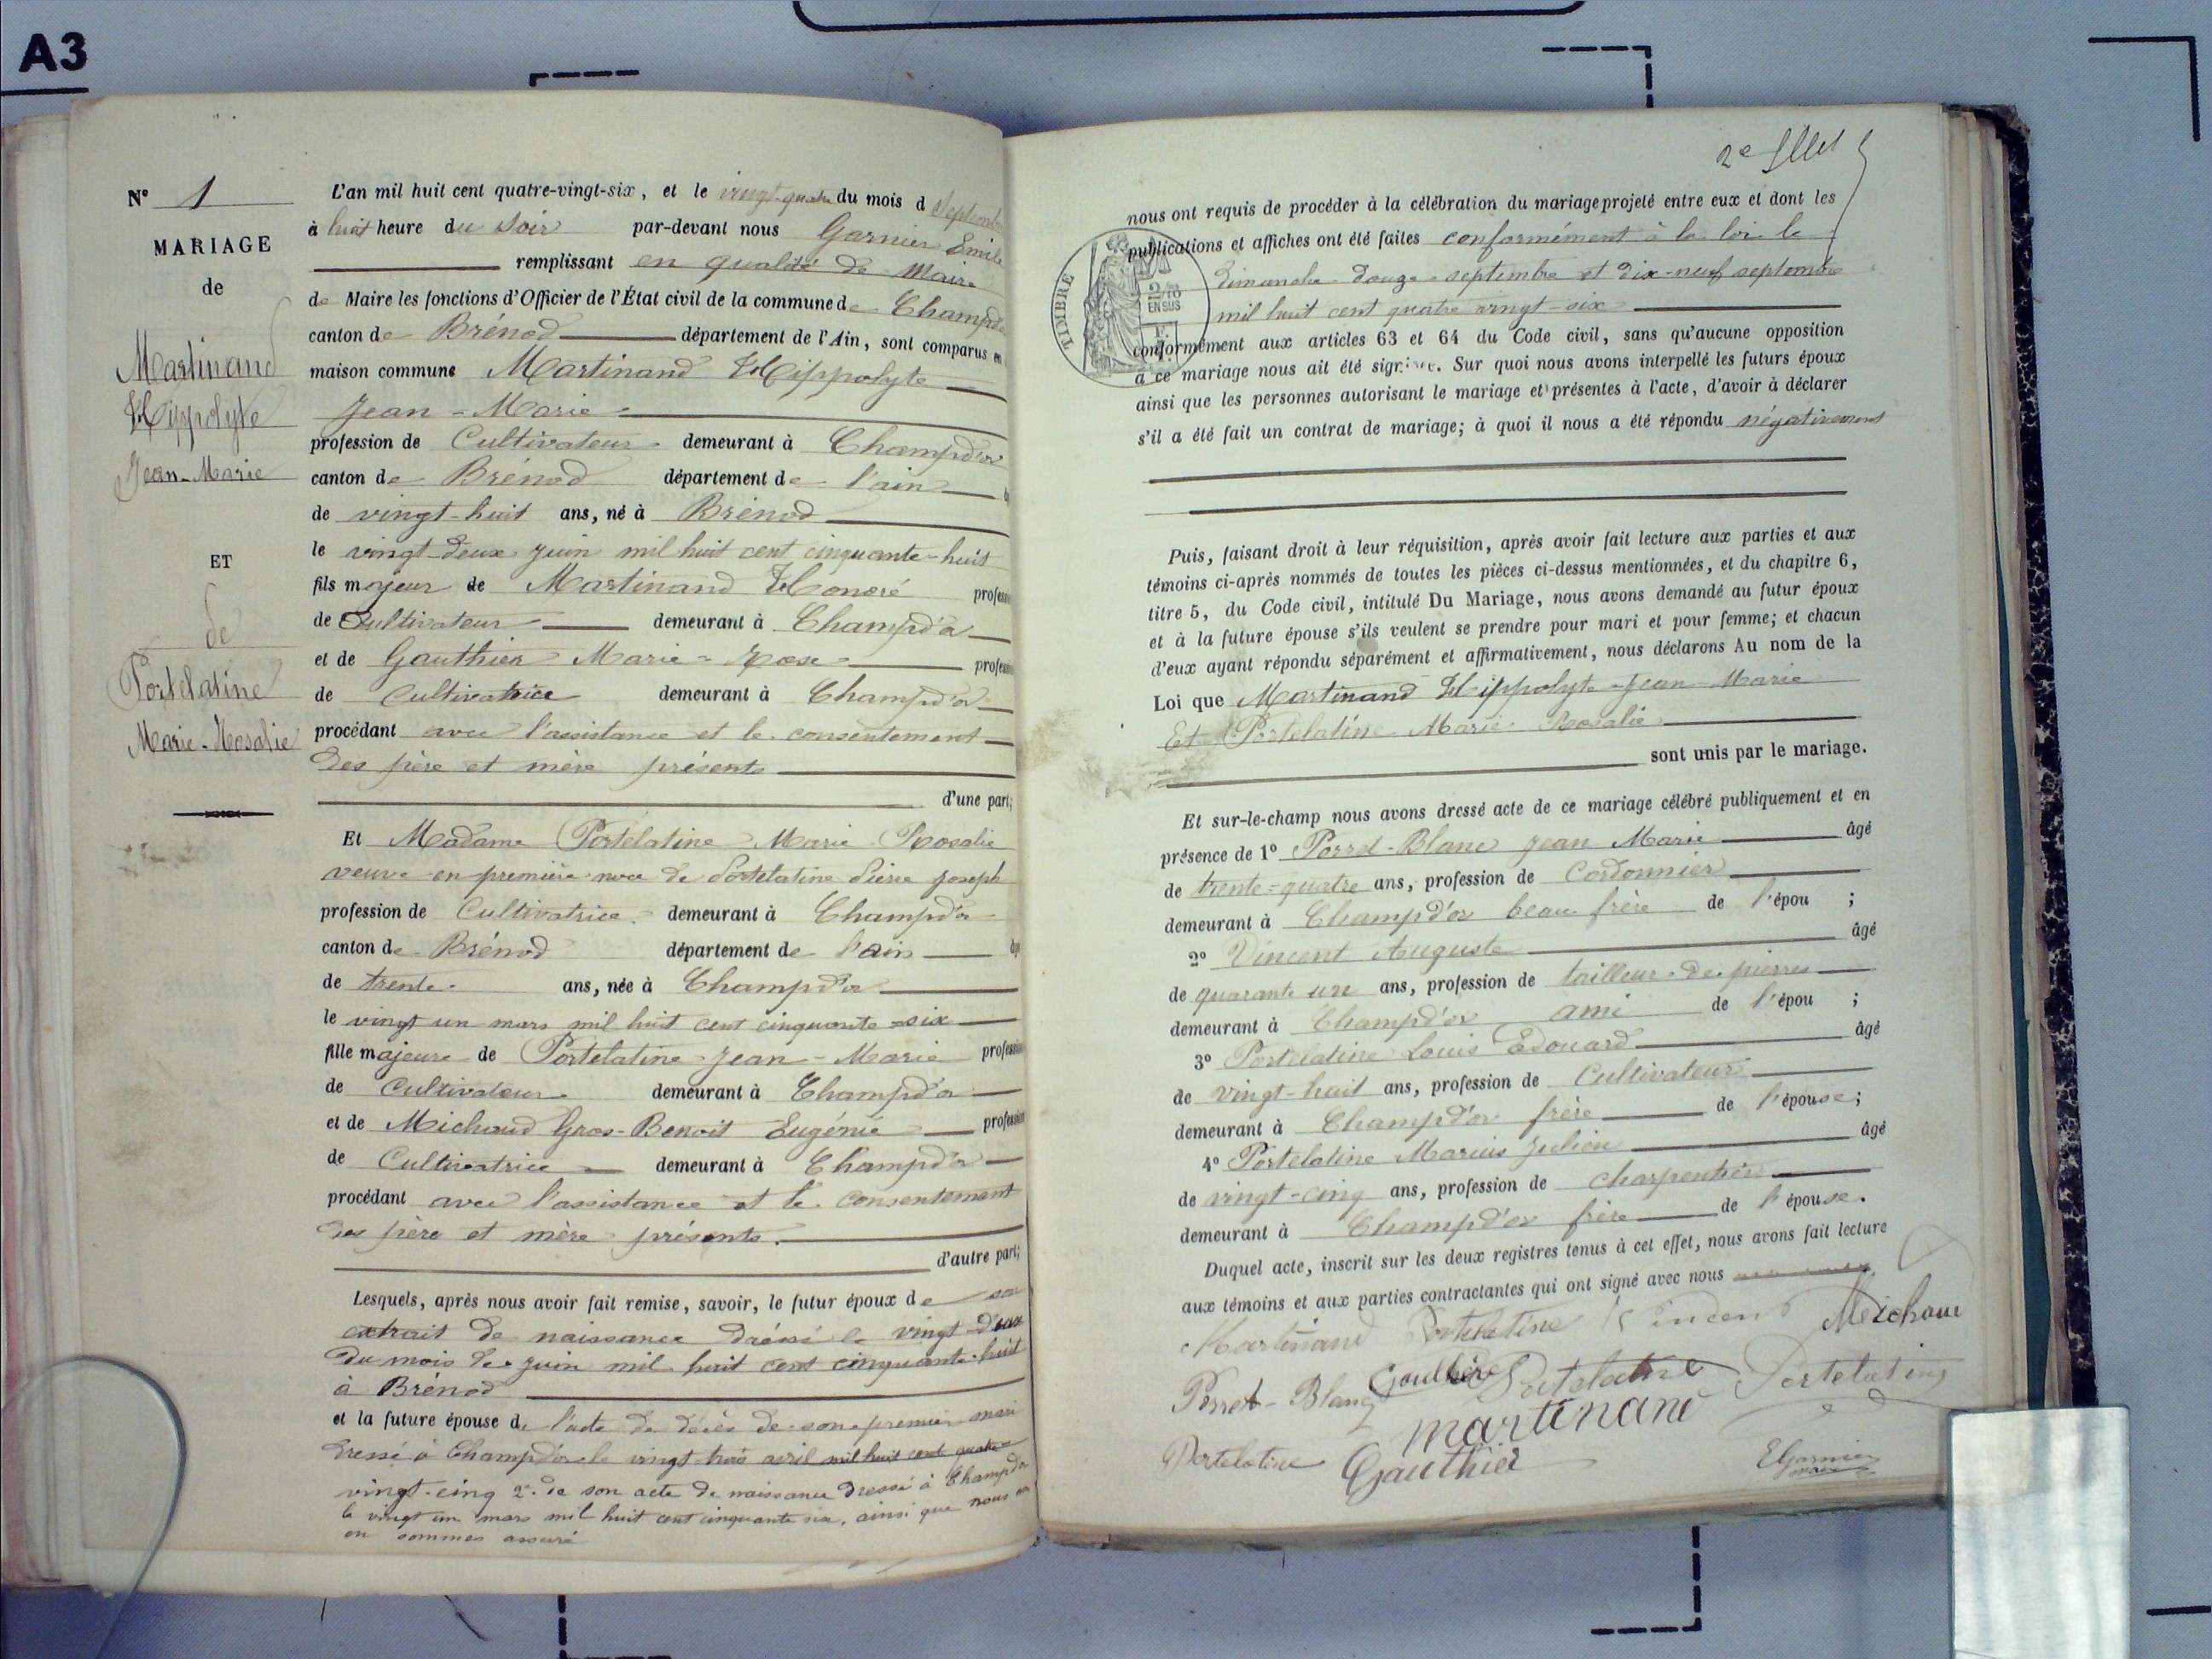 A3
N° 1
MARIAGE
de
Martinand
Hippolyte
Jean-Marie
ET
de
Portelatine
Marie-Rosalie
L'an mil huit cent quatre-vingt-six, et le vingt-quatre du mois d septembre
à huit heure du soir par-devant nous Garnier Emile
remplissant en qualité de Maire
de Maire les fonctions d'Officier de l'État civil de la commune de Champd'or
canton de Brénod département de l'Ain, sont comparus en
maison commune Martinand Hippolyte
Jean-Marie
profession de Cultivateur demeurant à Champd'or
canton de Brénod département de l'ain
de vingt-huit ans, né à Brénod
le vingt-deux juin mil huit cent cinquante-huit
fils majeur de Martinand Honoré profession
de Cultivateur demeurant à Champd'or
et de Gauthier Marie-Rose profession
de Cultivatrice demeurant à Champd'or
procédant avec l'assistance et le consentement
des père et mère présents
d'une part;
Et Madame Portelatine Marie Rosalie
veuve en première noce de Portelatine Pierre Joseph
profession de Cultivatrice demeurant à Champd'or
canton de Brénod département de l'ain
de trente ans, née à Champd'or
le vingt un mars mil huit cent cinquante-six
fille majeure de Portelatine Jean-Marie profession
de Cultivateur demeurant à Champd'or
et de Michaud Gros-Benoit Eugénie profession
de Cultivatrice demeurant à Champd'or
procédant avec l'assistance et le consentement
des père et mère présents.
d'autre part;
Lesquels, après nous avoir fait remise, savoir, le futur époux de son
extrait de naissance dréssé le vingt-deux
du mois de juin mil huit cent cinquante-huit
à Brénod
et la future épouse de l'acte de décès de son premier mari
dressé à Champd'or le vingt trois avril mil huit cent quatre
vingt-cinq 2° de son acte de naissance dressé à Champd'or
le vingt un mars mil huit cent cinquante six, ainsi que nous
en sommes assuré
2e fllet
nous ont requis de procéder à la célébration du mariage projeté entre eux et dont les
publications et affiches ont été faites conformément à la loi le
dimanche douze septembre et dix-neuf septembre
mil huit cent quatre vingt-six
TIMBRE
2/10
EN SUS
conformément aux articles 63 et 64 du Code civil, sans qu'aucune opposition
à ce mariage nous ait été signifiée. Sur quoi nous avons interpellé les futurs époux
ainsi que les personnes autorisant le mariage et présentes à l'acte, d'avoir à déclarer
s'il a été fait un contrat de mariage; à quoi il nous a été répondu négativement
Puis, faisant droit à leur réquisition, après avoir fait lecture aux parties et aux
témoins ci-après nommés de toutes les pièces ci-dessus mentionnées, et du chapitre 6,
titre 5, du Code civil, intitulé Du Mariage, nous avons demandé au futur époux
et à la future épouse s'ils veulent se prendre pour mari et pour femme; et chacun
d'eux ayant répondu séparément et affirmativement, nous déclarons Au nom de la
Loi que Martinand Hippolyte Jean-Marie
Et Portelatine Marie Rosalie
sont unis par le mariage.
Et sur-le-champ nous avons dressé acte de ce mariage célébré publiquement et en
présence de 1° Perret-Blanc Jean Marie âgé
de trente-quatre ans, profession de Cordonnier
demeurant à Champd'or beau-frère de l'épou ;
2° Vincent Auguste âgé
de quarante un ans, profession de tailleur de pierres
demeurant à Champd'or ami de l'épou ;
3° Portelatine Louis Edouard âgé
de vingt-huit ans, profession de Cultivateur
demeurant à Champd'or frère de l'épouse;
4° Portelatine Marius Julien âgé
de vingt-cinq ans, profession de charpentier
demeurant à Champd'or frère de l'épouse.
Duquel acte, inscrit sur les deux registres tenus à cet effet, nous avons fait lecture
aux témoins et aux parties contractantes qui ont signé avec nous
Martinand Portelatine Vincent Michaud
Perret-Blanc Gauthier Portelatine Portelatine
martinand
Portelatine Gauthier EGarnier